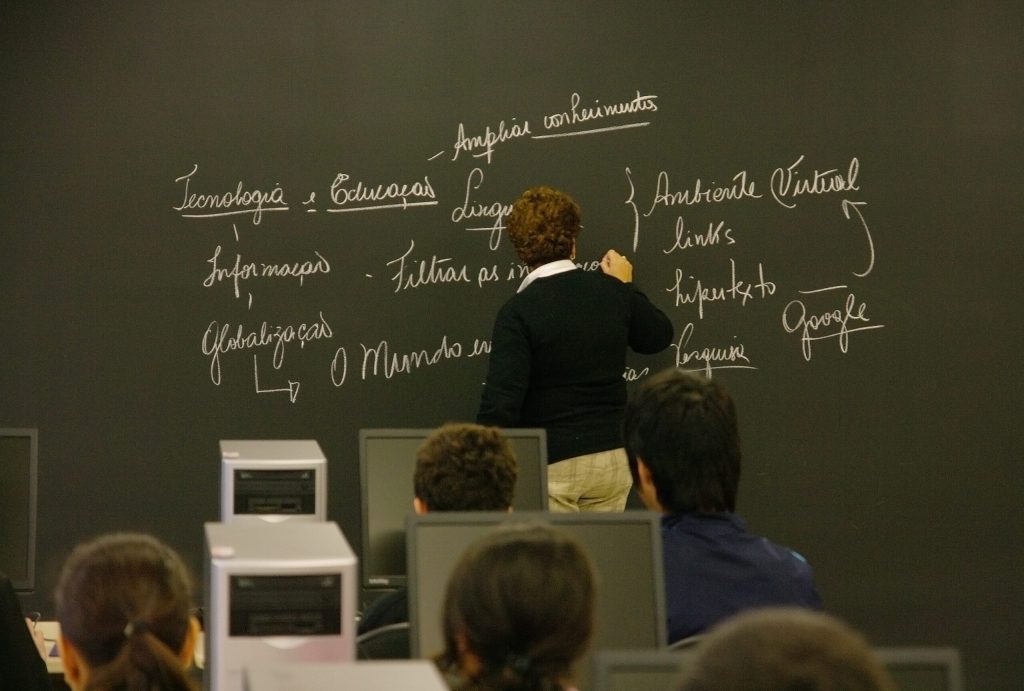 - Ampliar conhecimentos
Tecnologia e Educação
Informação - Filtrar as
Globalização
O Mundo
Ambiente Virtual
links
hipertexto
Google
Pesquisa